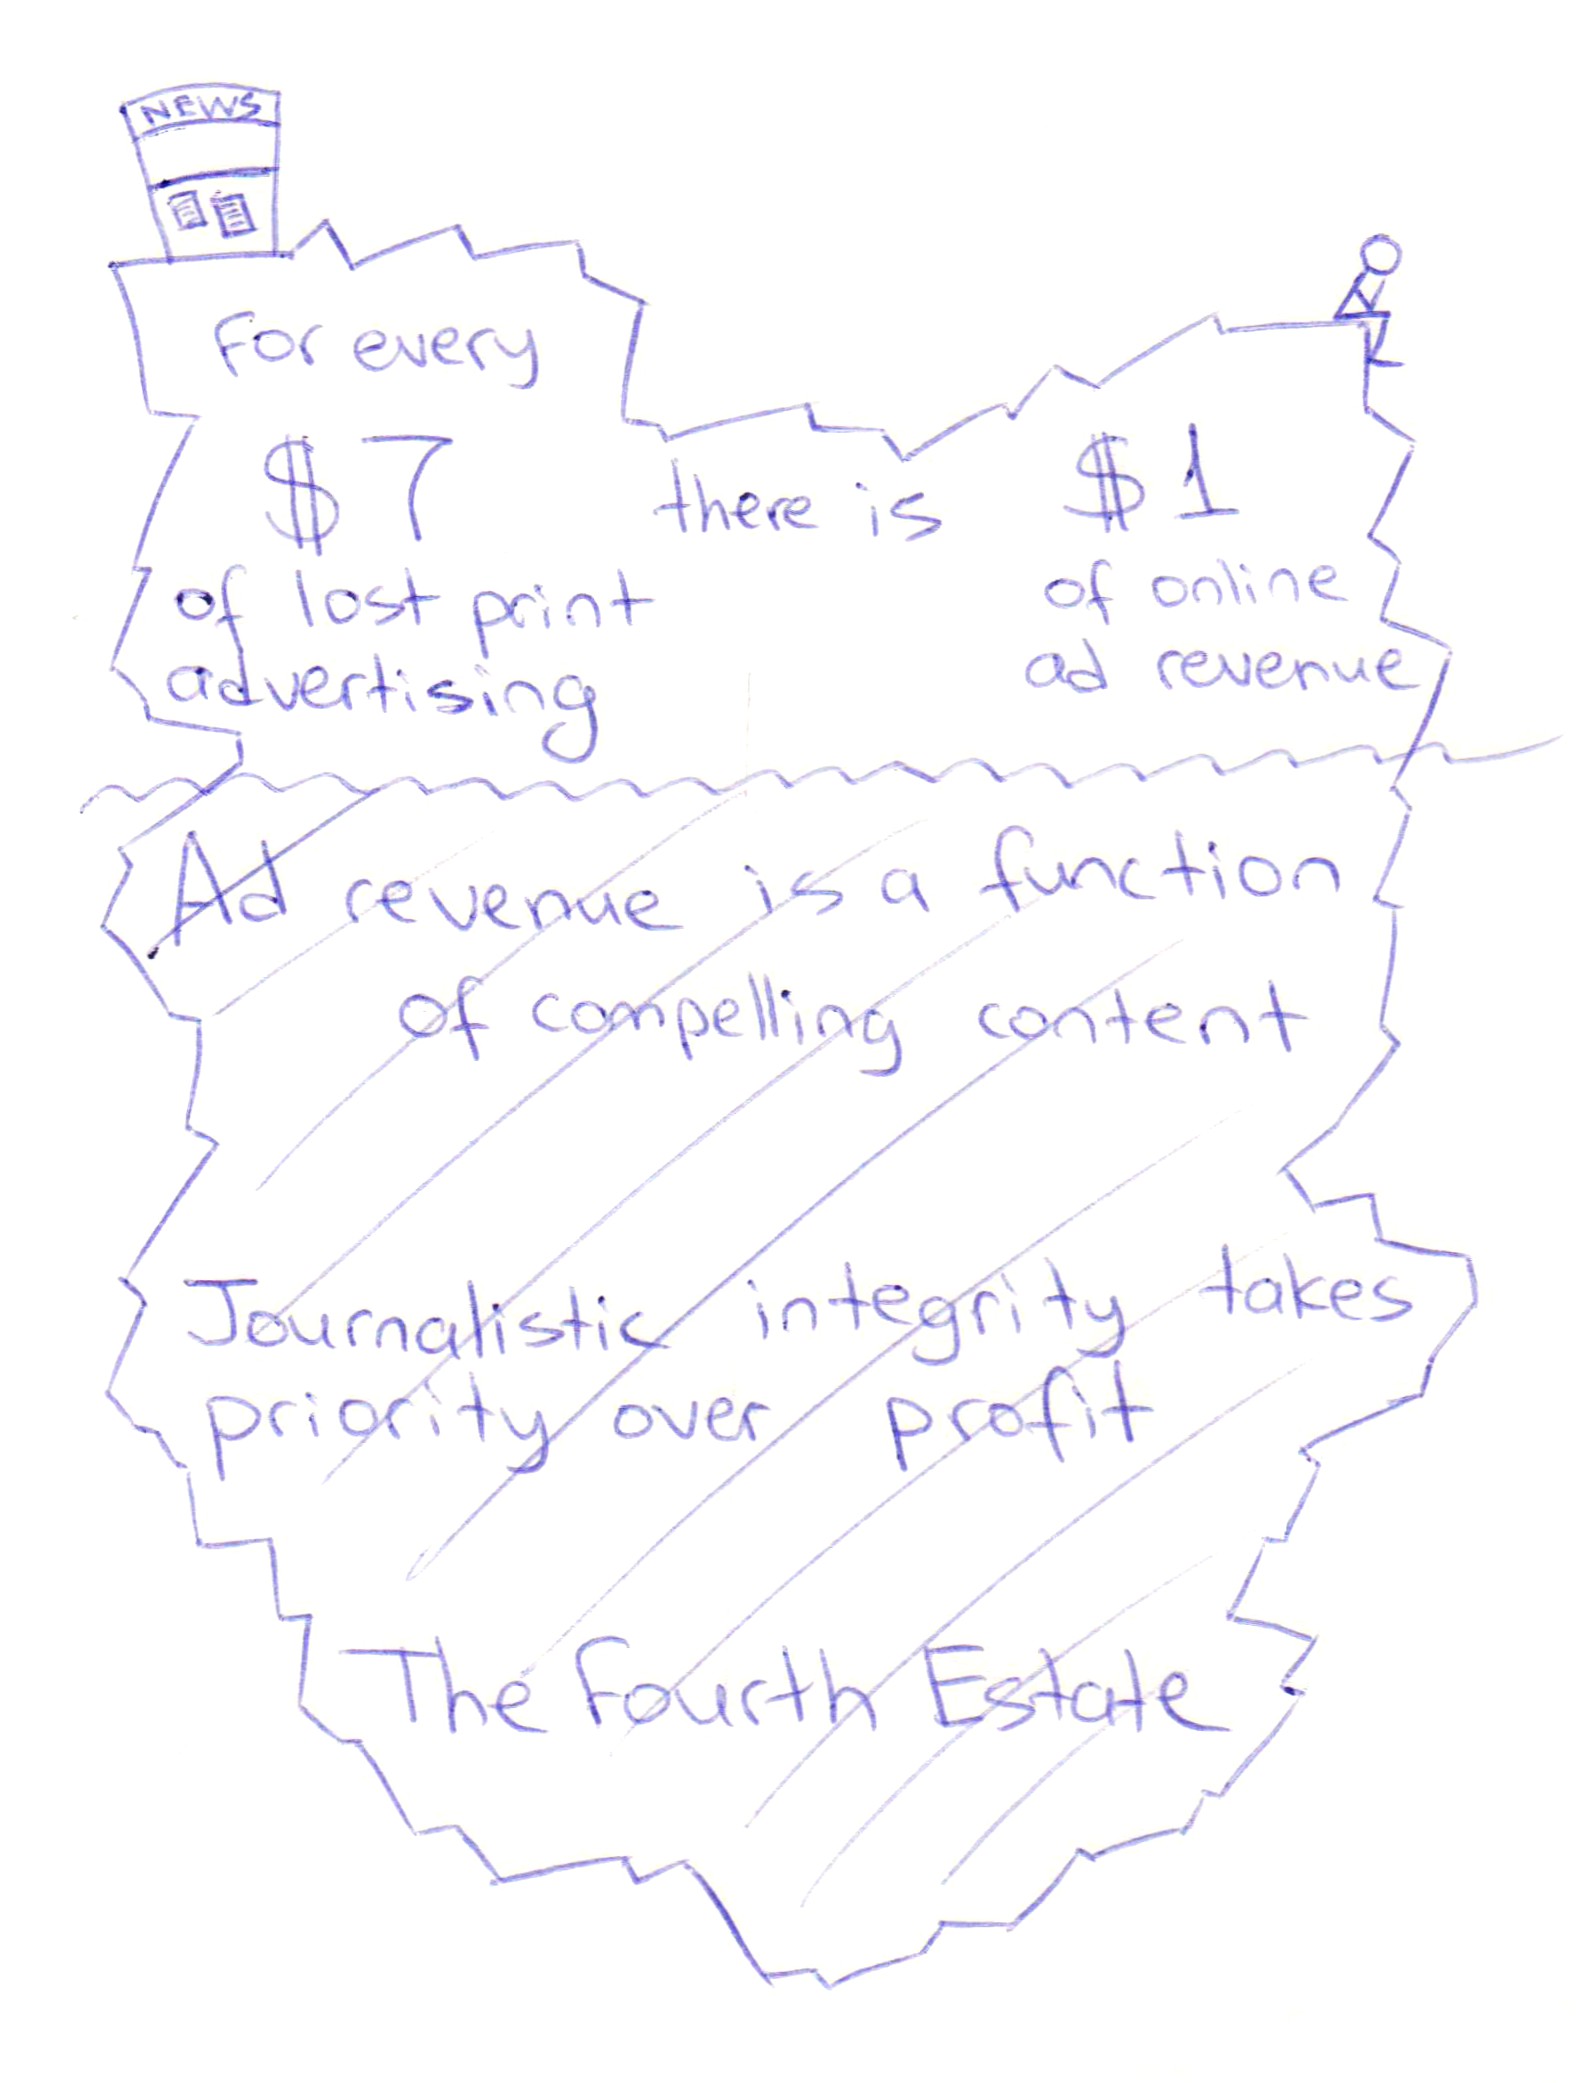 NEWS
For every
$7 there is $1
of lost print
advertising
of online
ad revenue
Ad revenue is a function
of compelling content
Journalistic integrity takes
priority over profit
The Fourth Estate